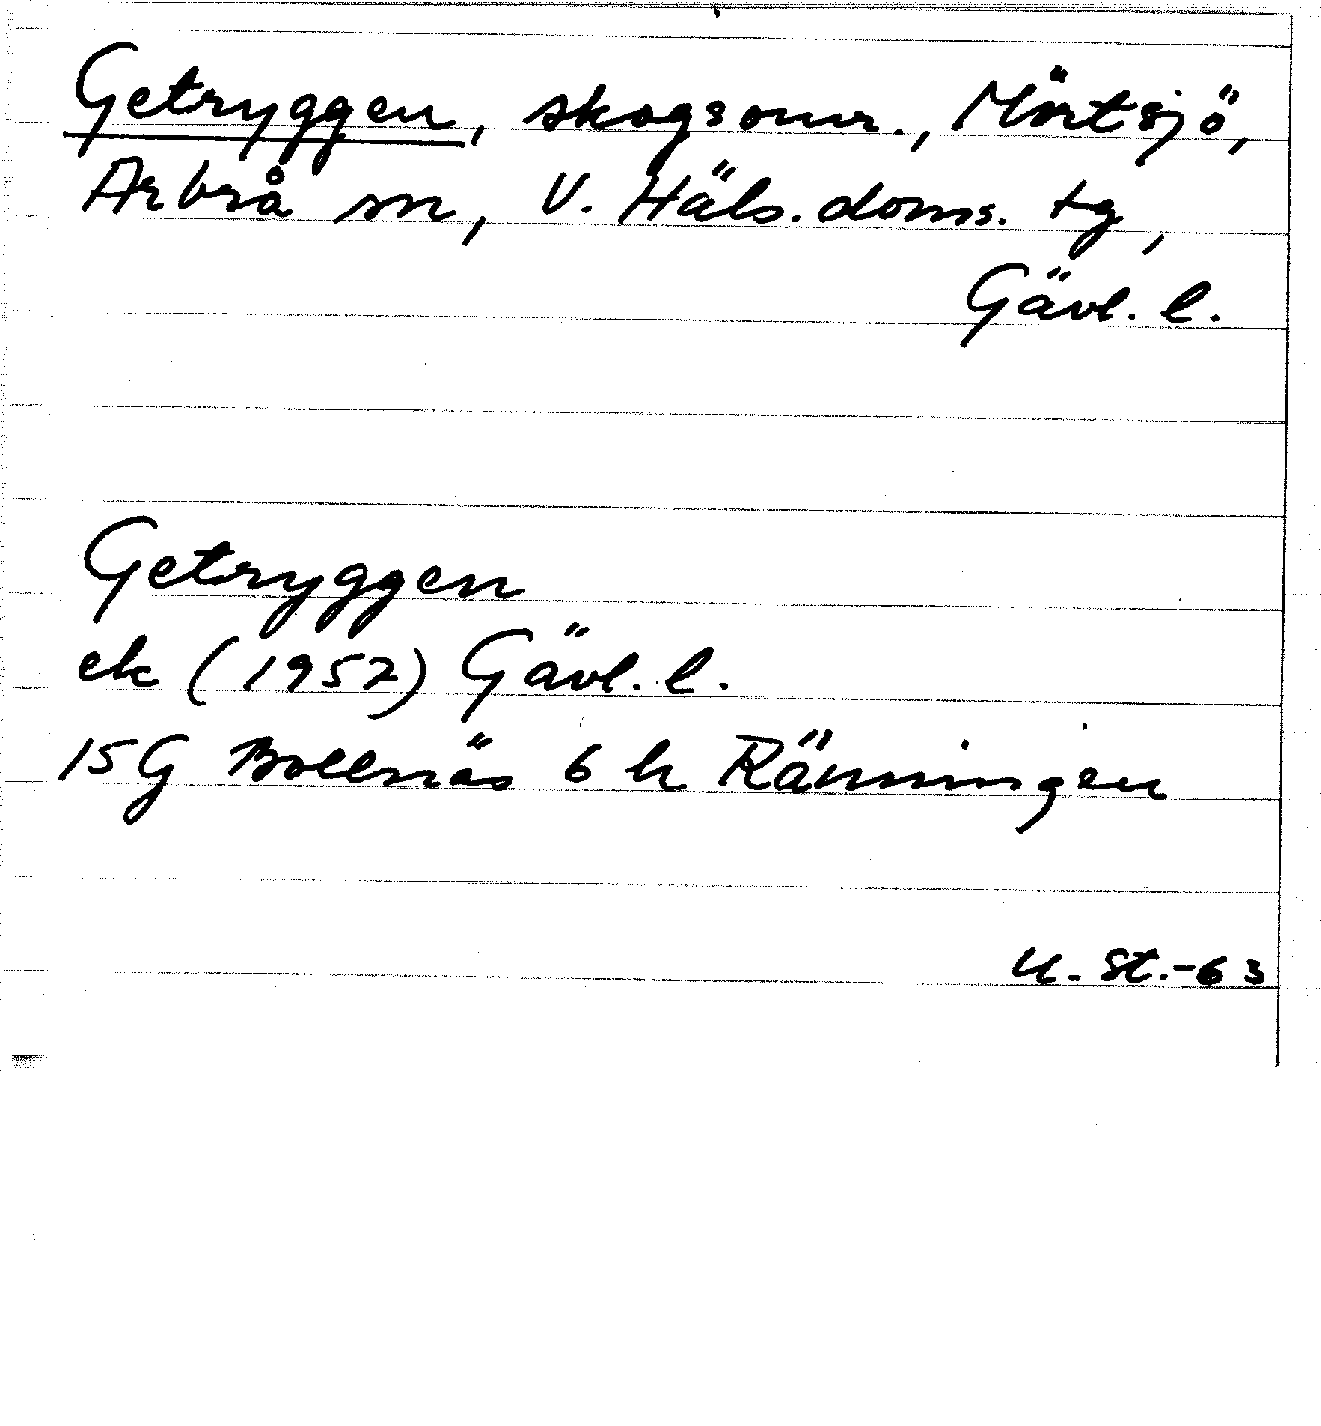 Getryggen, skogsomr., Mörtsjö,
Arbrå sn, V. Häls. doms. tg,
Gävl. l.
Getryggen
ek (1957) Gävl. l.
15G Bollnäs 6 h Ränningen
U. St.-63